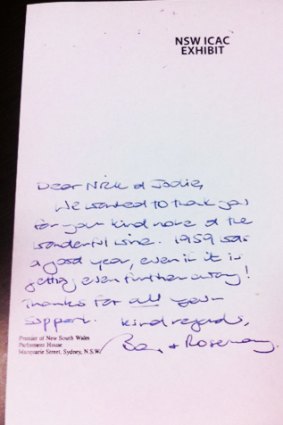 NSW ICAC
EXHIBIT
Dear Nick & Jodie,
We wanted to thank you
for your kind note & the
wonderful wine. 1959 was
a good year, even if it is
getting even further away!
Thanks for all your
support. Kind regards,
Premier of New South Wales
Parliament House
Macquarie Street, Sydney, N.S.W.
Barry + Rosemary